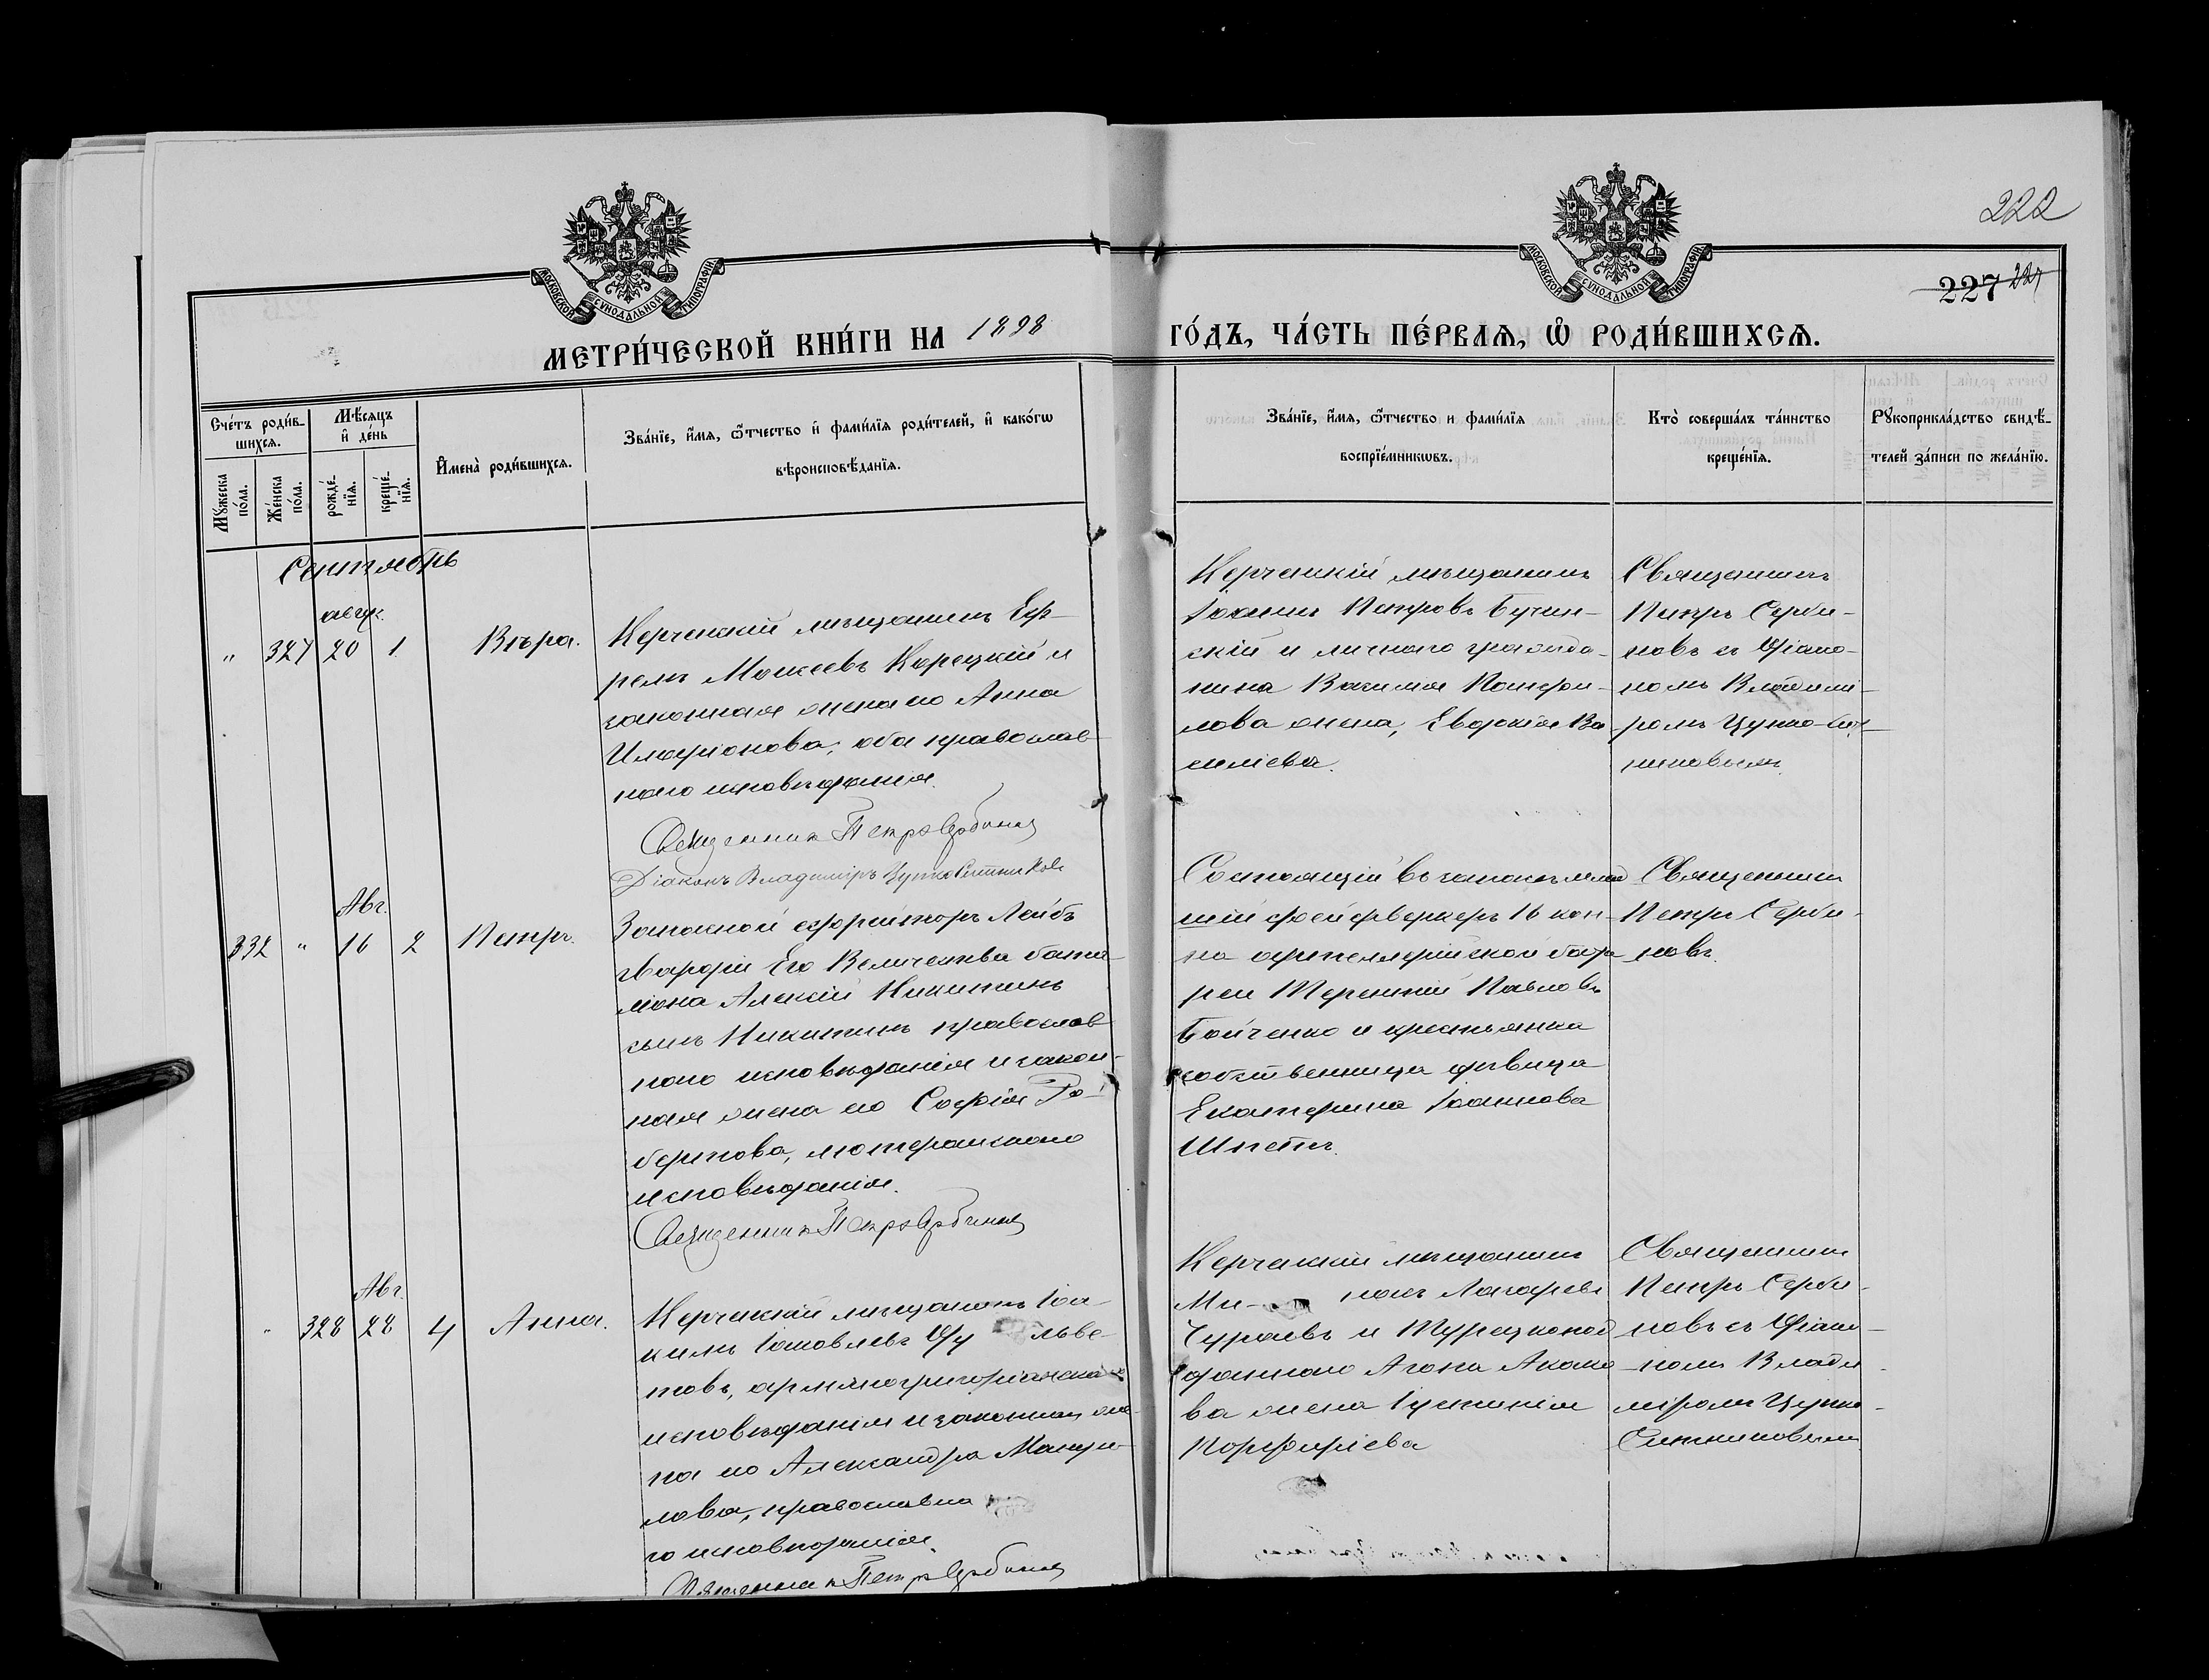 222
227 227
МОСКОВСКОЙ СѴНОДАЛЬНОЙ ТИПОГРАФІИ
МОСКОВСКОЙ СѴНОДАЛЬНОЙ ТИПОГРАФІИ
МЕТРИ́ЧЕСКОЙ КНИ́ГИ НА 1898 ГО́ДЪ, ЧА́СТЬ ПЕ́РВАѦ, Ѡ҆ РОДИ́ВШИХСѦ.
Сче́тъ роди́в-
шихсѧ.
Мꙋ́жеска
по́ла.
Же́нска
по́ла.
Мѣ́сѧцъ
и҆ де́нь
рожде́-
нїѧ.
креще́-
нїѧ.
И҆мена̀ роди́вшихсѧ.
Зва́нїе, и҆́мѧ, ѻ҆́тчество и҆ фами́лїѧ роди́телей, и҆ како́гѡ
вѣроисповѣ́данїѧ.
Зва́нїе, и҆́мѧ, ѻ҆́тчество и фами́лїѧ
воспрїе́мникѡвъ.
Кто̀ соверша́лъ та́инство
креще́нїѧ.
Рꙋкоприкла́дство свидѣ́-
телей за́писи по жела́нїю.
Сентябрь
авгу.
" 327 20 1. Вѣра.
Керченскій мѣщанинъ Еф-
ремъ Моисеевъ Корецкій и
законная жена его Анна
Иларіонова, оба православ-
наго исповѣданія.
Священникъ Петръ Сербиновъ
Діаконъ Владиміръ Цупко Ситниковъ
Керченскій мѣщанинъ
Іоаннъ Петровъ Бучин-
скій и личнаго гражда-
нина Памфи-
лова жена, Евдокія Ва-
силіева.
Священникъ
Петръ Серби-
новъ съ Діако-
номъ Владими-
ромъ Цупко-Сит-
никовымъ.
Авг.
332 " 16 2 Петръ.
Запасной ефрейторъ Лейбъ
гвардіи Его Величества бата-
ліона Алексій Никитинъ
сынъ Никитинъ православ-
наго исповѣданія и закон-
ная жена его Софія Ро-
бертова, лютеранскаго
исповѣданія.
Священникъ Петръ Сербиновъ
Состоящій въ запасѣ млад
шій фейерверкеръ 16 кон-
но артиллерійской бата
реи Терентій Павловъ
Бойченко и крестьянка
собственница дѣвица
Екатерина Іоаннова
Шпетъ.
Священникъ
Петръ Серби-
новъ.
Авг.
" 328 28 4 Анна.
Керченскій мѣщанинъ Іоа-
кимъ Іаковлевъ льве-
товъ, армяногригоріанскаго
исповѣданія и законная же-
на его Александра Мануи-
лова, православна
го исповѣданія.
Священникъ Петръ Сербиновъ
Керченскій мѣщанинъ
Ми- Лазаревъ
Чураевъ и Турецкопод
даннаго
ва жена Іустинія
Порфиріева
Священникъ
Петръ Серби-
новъ съ Діако-
номъ Влади-
міромъ Цупко-
Ситниковымъ